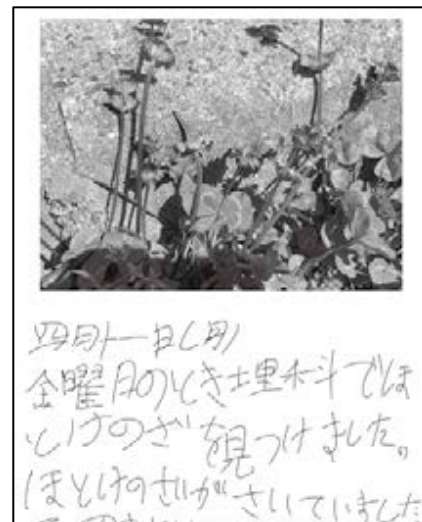 四月十一日(月)
金曜日のとき理科でほ
とけのざを見つけました。
ほとけのざがさいていました